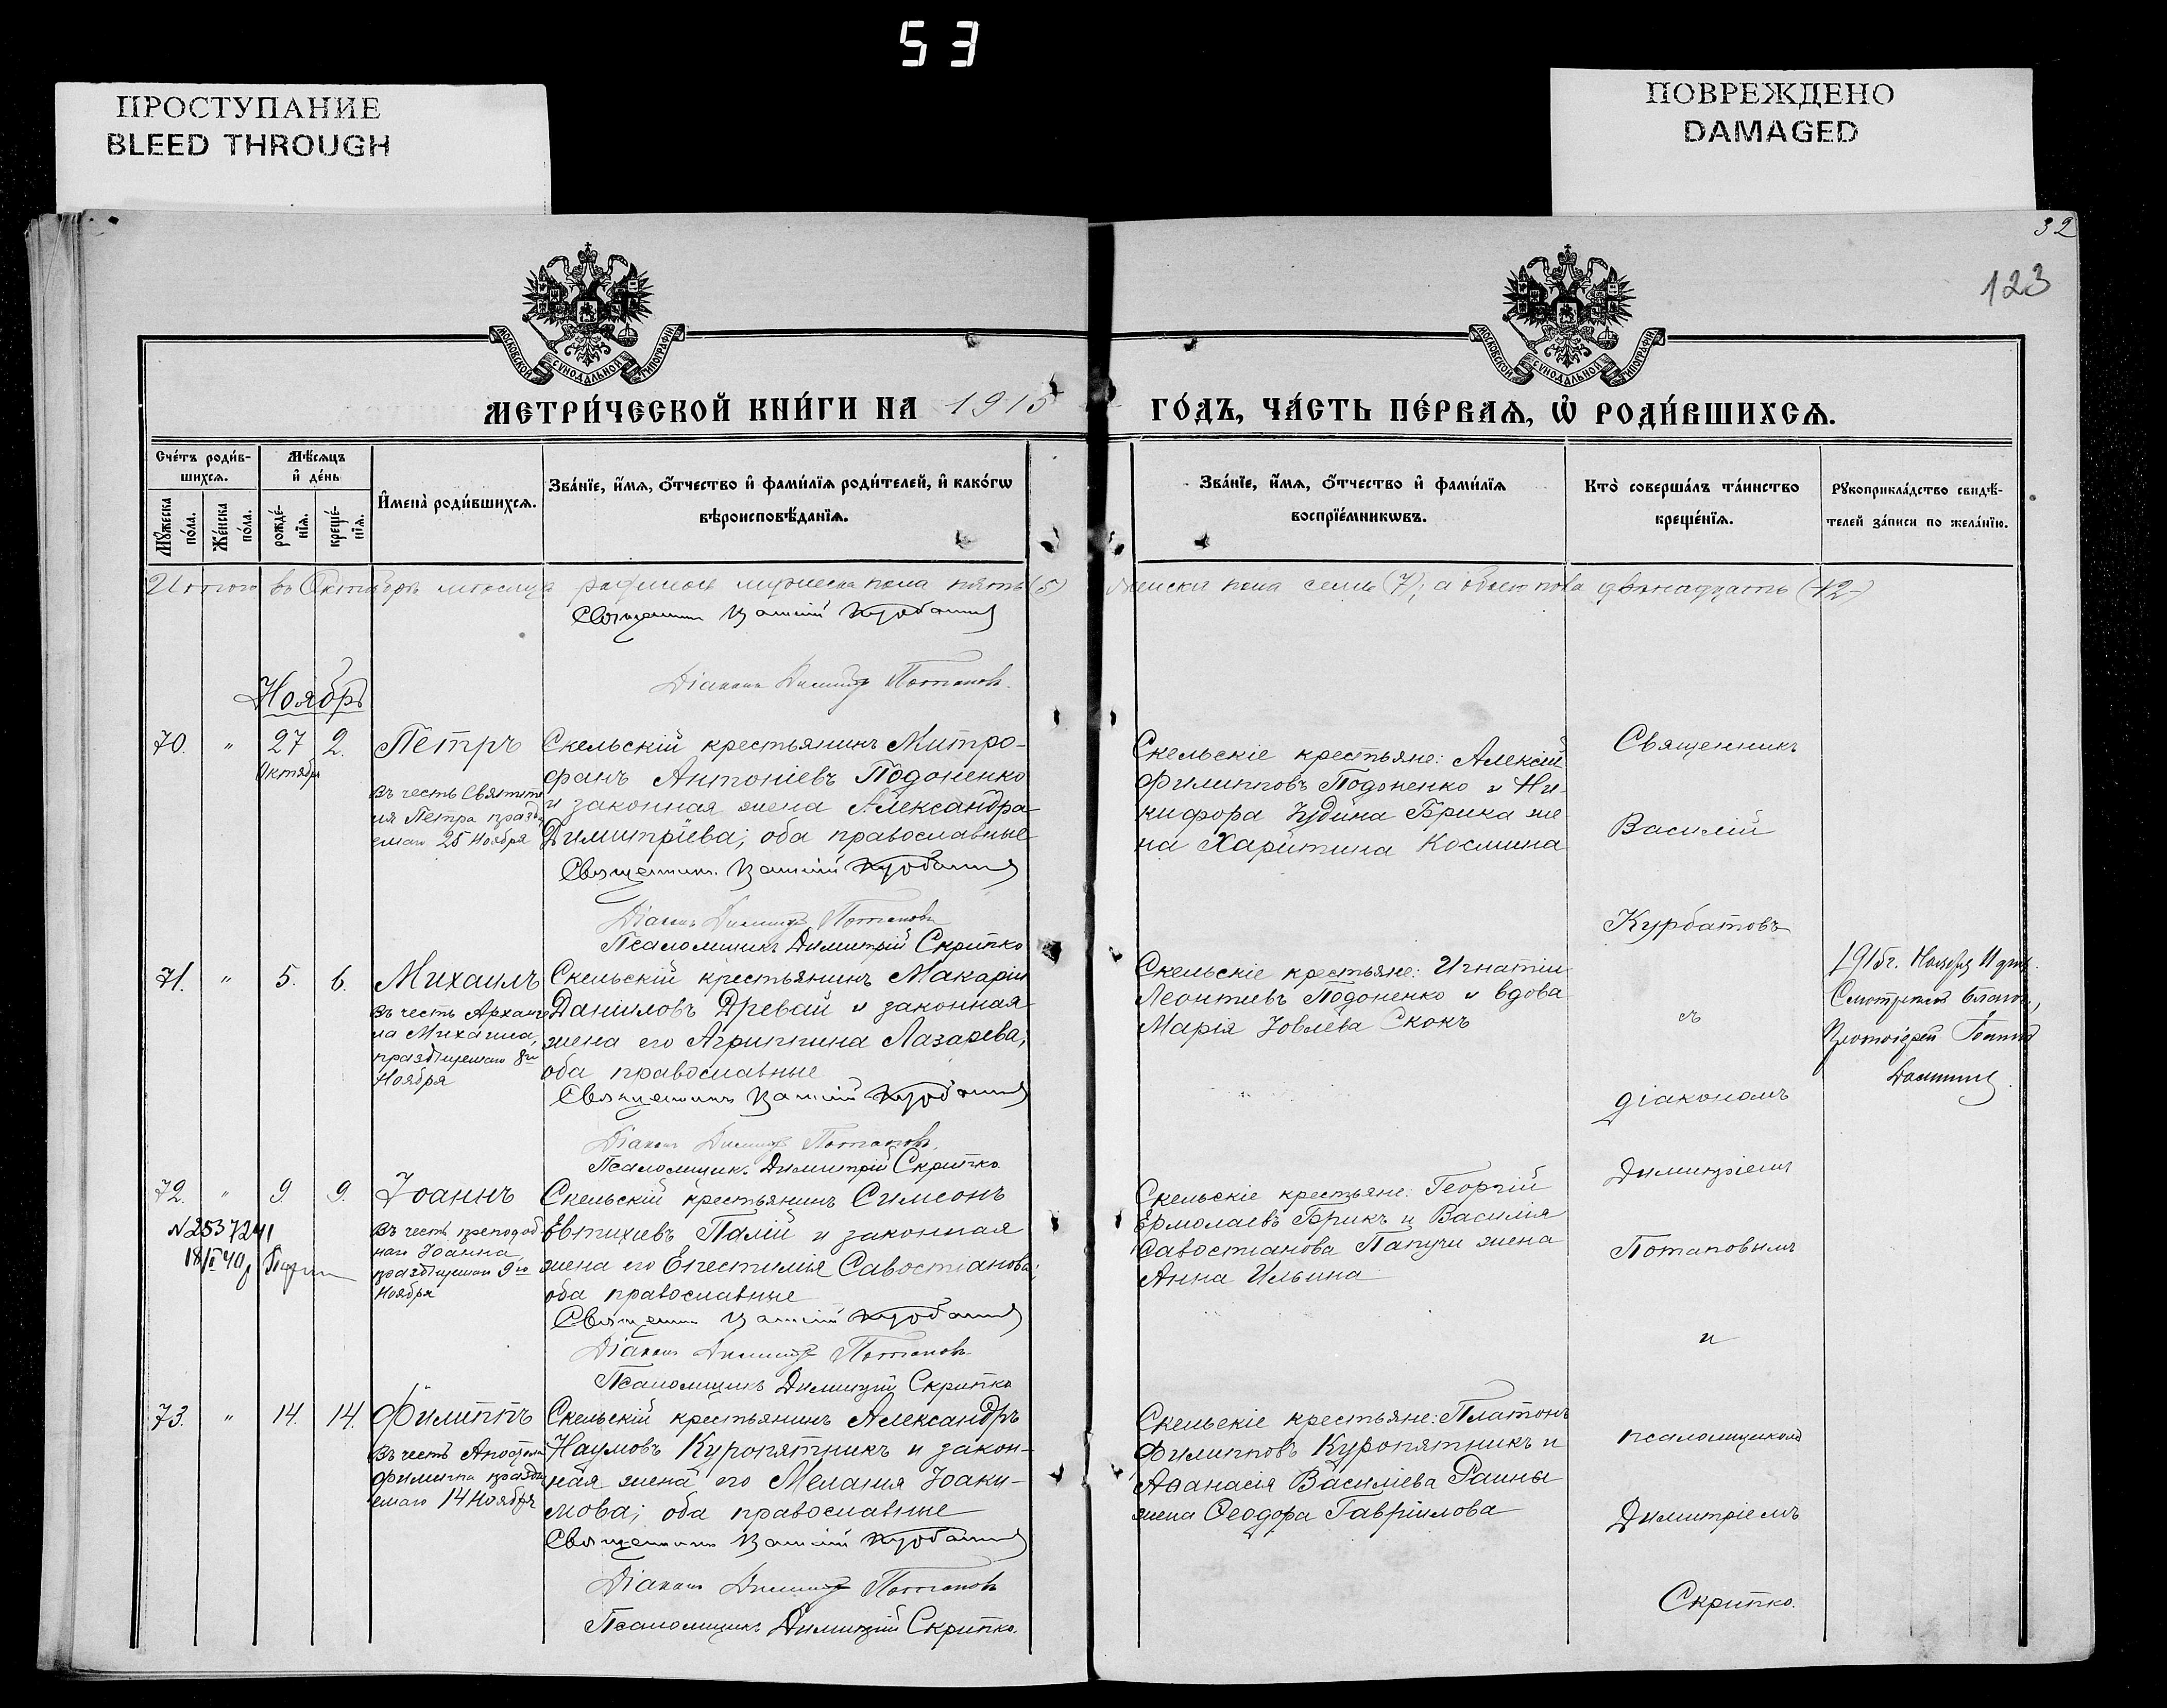 53
ПРОСТУПАНИЕ
BLEED THROUGH
ПОВРЕЖДЕНО
DAMAGED
32
123
МОСКОВСКОЙ СѴНОДАЛЬНОЙ ТИПОГРАФІИ
МОСКОВСКОЙ СѴНОДАЛЬНОЙ ТИПОГРАФІИ
МЕТРИ́ЧЕСКОЙ КНИ́ГИ НА 1915
ГО́ДЪ, ЧА́СТЬ ПЕ́РВАѦ, Ѡ҆ РОДИ́ВШИХСѦ.
Сче́тъ роди́в-
шихсѧ.
Мѣ́сѧцъ
и҆ де́нь
Мꙋ́жеска по́ла.
Же́нска по́ла.
рожде́-нїѧ.
креще́-нїѧ.
И҆мена̀ роди́вшихсѧ.
Зва́нїе, и҆́мѧ, ѻ҆́тчество и҆ фами́лїѧ роди́телей, и҆ како́гѡ
вѣроисповѣ́данїѧ.
Зва́нїе, и҆́мѧ, ѻ҆́тчество и҆ фами́лїѧ
воспрїе́мникѡвъ.
Кто̀ соверша́лъ та́инство
креще́нїѧ.
Рꙋкоприкла́дство свидѣ́-
телей за́писи по жела́нїю.
Итого въ Октябрѣ мѣсяцѣ родилось мужеска пола пять (5) женска пола семь (7), а обоего пола двѣнадцать (12)
Священникъ Василій Курбатовъ
Діаконъ Димитрій Потаповъ.
Ноябрь
70. " 27 2. Петръ
Октября
Въ честь Святите
ля Петра празд.
емаго 25 Ноября
Скельскій крестьянинъ Митро-
фанъ Антоніевъ Подоненко
и законная жена Александра
Димитріева; оба православные
Священникъ Василій Курбатовъ
Діаконъ Димитрій Потаповъ
Псаломщикъ Димитрій Скрипко
Скельскіе крестьяне: Алексій
Филипповъ Подоненко и Ни-
кифора Іудина Брика же
на Харитина Космина
Священникъ
Василій
Курбатовъ
71. " 5. 6. Михаилъ
Въ честь Арханге
ла Михаила,
празднуемаго 8го
Ноября
Скельскій крестьянинъ Макарій
Даниловъ Древай и законная
жена его Агриппина Лазарева;
оба православные
Священникъ Василій Курбатовъ
Діаконъ Димитрій Потаповъ.
Псаломщикъ Димитрій Скрипко
Скельскіе крестьяне: Игнатій
Леонтіевъ Подоненко и вдова
Марія Іовлева Скокъ
съ
діакономъ
Димитріемъ
1915г. Ноября 11 дня.
Смотрѣлъ благоч.,
Протоіерей Іоаннъ
72. " 9 9. Іоаннъ
N2537241
Въ честь преподоб
наго Іоанна
празднуемаго 9го
Ноября
Скельскій крестьянинъ Симеонъ
Евтихіевъ Палій и законная
жена его Епестимія Савостіанова;
оба православные
Священникъ Василій Курбатовъ
Діаконъ Димитрій Потаповъ
Псаломщикъ Димитрій Скрипко
Скельскіе крестьяне: Георгій
Ермолаевъ Брикъ и Василія
Савостіанова Папучи жена
Анна Ильина
Потаповымъ
и
73. " 14. 14. Филиппъ
Въ честь Апостола
Филиппа праздну
емаго 14 Ноября
Скельскій крестьянинъ Александръ
Наумовъ Куропятникъ и закон-
ная жена его Меланія Іоаки-
мова; оба православные
Священникъ Василій Курбатовъ
Діаконъ Димитрій Потаповъ
Псаломщикъ Димитрій Скрипко.
Скельскіе крестьяне: Платонъ
Филипповъ Куропятникъ и
Аѳанасія Василіева Раины
жена Ѳеодора Гавріилова
псаломщикомъ
Димитріемъ
Скрипко.